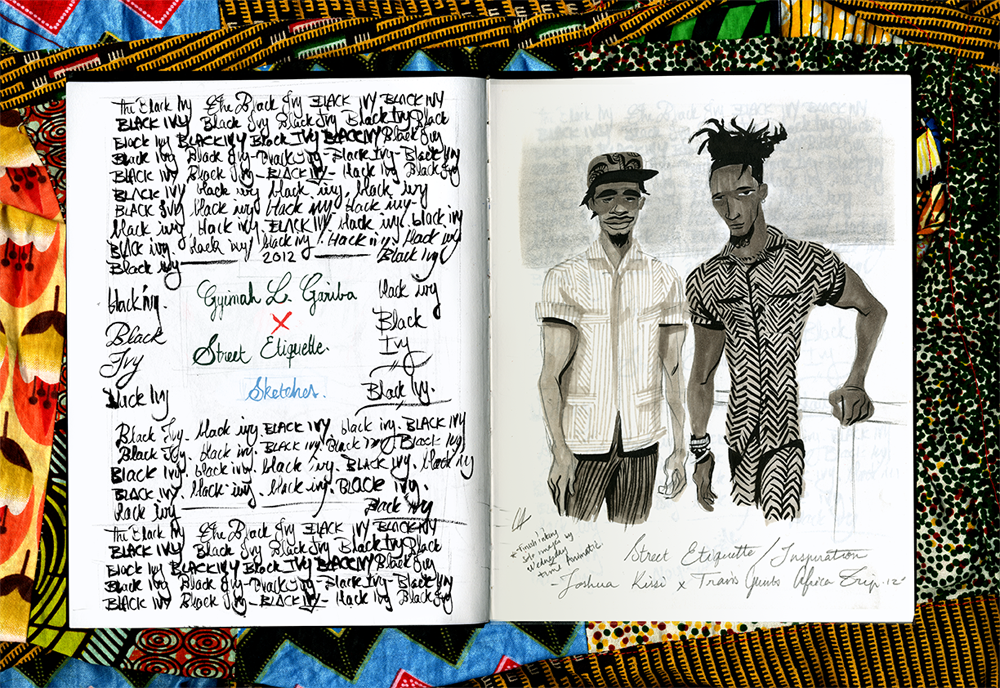 The Black Ivy The Black Ivy BLACK IVY BLACK IVY
BLACK IVY Black Ivy Black Ivy Black Ivy Black
Black Ivy BLACK IVY Black Ivy BLACK IVY Black Ivy
Black Ivy Black Ivy - Black Ivy - Black Ivy - Black Ivy
BLACK IVY Black Ivy - BLACK IVY - Black Ivy Black Ivy
BLACK IVY black ivy black ivy. black ivy
BLACK IVY black ivy black ivy black ivy -
black ivy. black ivy. BLACK ivy. black ivy. black ivy
BLACK ivy. black ivy black ivy. black ivy. black ivy
Black ivy 2012 Black Ivy
black ivy. Gyimah L. Gariba black ivy
Black Ivy X Black Ivy
Street Etiquette.
Black Ivy Sketches. Black Ivy.
Black Ivy. black ivy. BLACK IVY. black ivy. BLACK IVY.
Black Ivy. black ivy. BLACK IVY. Black Ivy Black Ivy
BLACK IVY. black ivy. black ivy. BLACK IVY. black ivy
BLACK IVY. black ivy. black ivy. BLACK IVY.
black ivy Black Ivy
The Black Ivy The Black Ivy BLACK IVY BLACK IVY
BLACK IVY Black Ivy Black Ivy Black Ivy Black
Black Ivy BLACK IVY Black Ivy BLACK IVY Black Ivy
Black Ivy Black Ivy - Black Ivy - Black Ivy - Black Ivy
BLACK IVY Black Ivy - BLACK IVY - Black Ivy Black Ivy
images by
wednesday
Street Etiquette / Inspiration
Joshua Kissi x Travis Gumbs Africa Trip '12